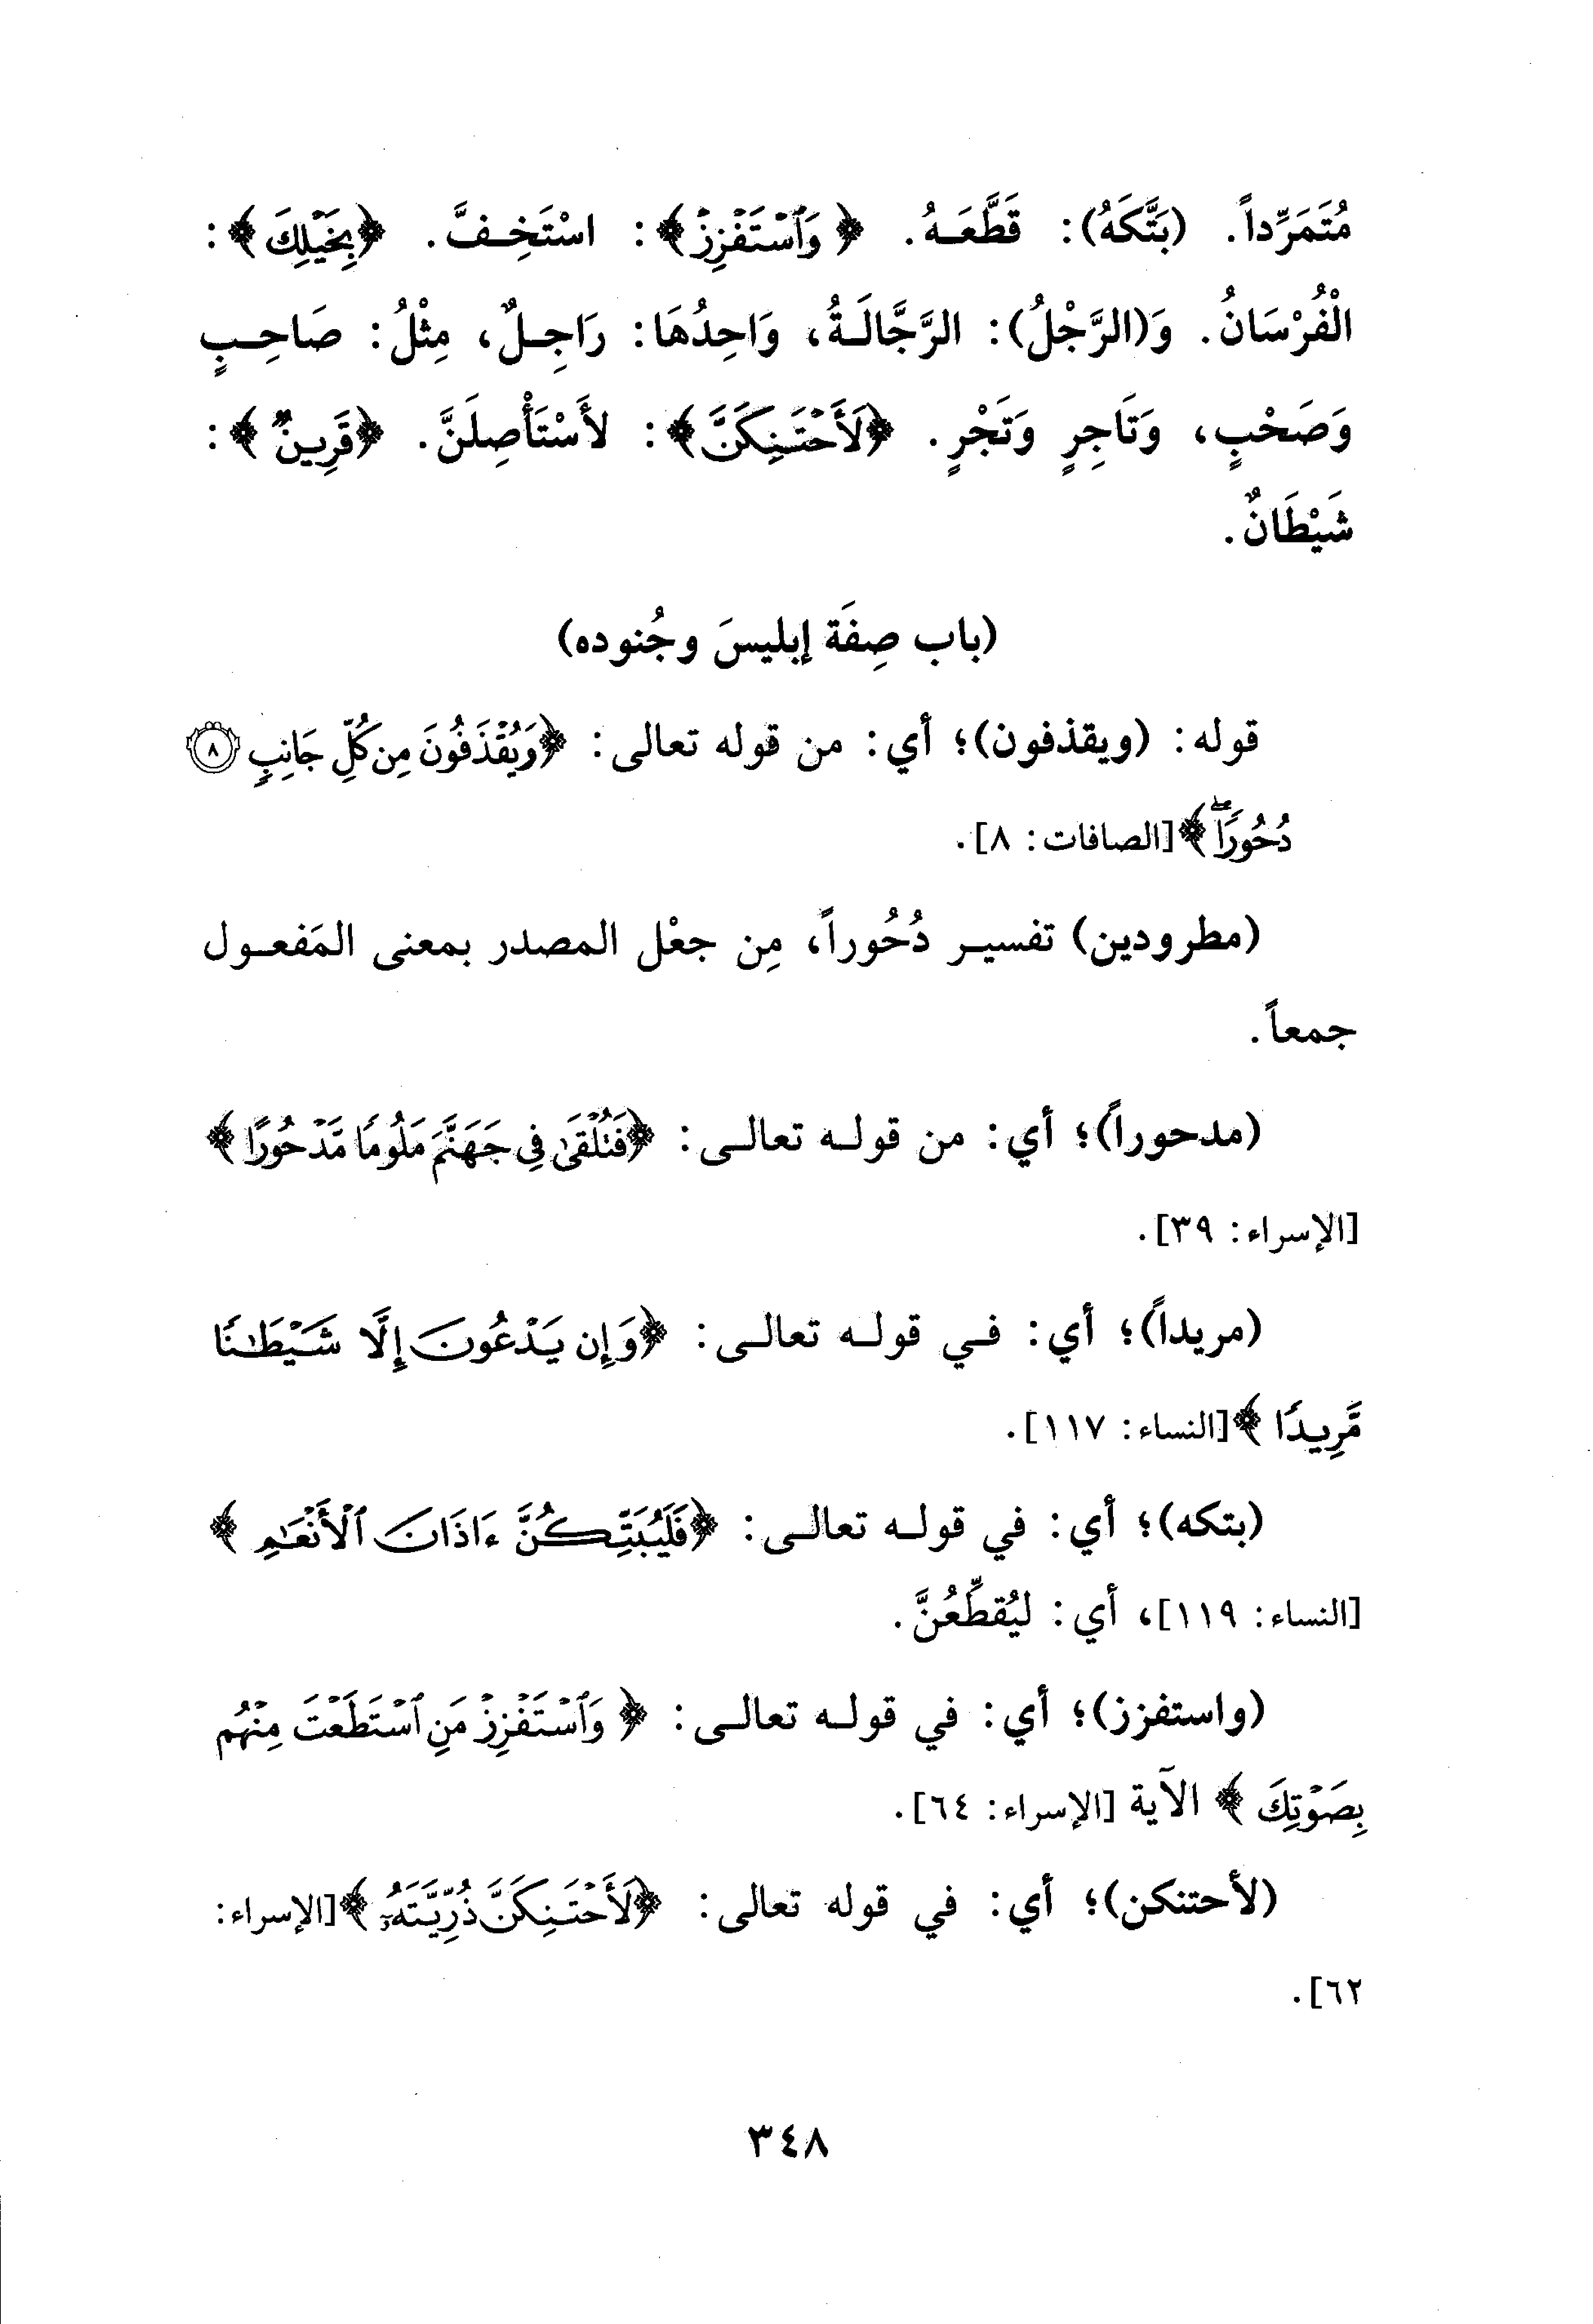 مُتَمَرِّداً. (بَتَّكَهُ): قَطَّعَـهُ. ﴿وَٱسْتَفْزِزْ﴾: اسْتَخِـفَّ. ﴿بِخَيْلِكَ﴾:
الْفُرْسَانُ. وَ(الرَّجْلُ): الرَّجَّالَـةُ، وَاحِدُهَا: رَاجِـلٌ، مِثْلُ: صَاحِـبٍ
وَصَحْبٍ، وَتَاجِرٍ وَتَجْرٍ. ﴿لَأَحْتَنِكَنَّ﴾: لأَسْتَأْصِلَنَّ. ﴿قَرِينٌ﴾:
شَيْطَانٌ.
(باب صِفَة إبليسَ وجُنوده)
قوله: (ويقذفون)؛ أي: من قوله تعالى: ﴿وَيُقْذَفُونَ مِن كُلِّ جَانِبٍ ٨
دُحُورًاۖ﴾[الصافات: ٨].
(مطرودين) تفسيـر دُحُوراً، مِن جعْل المصدر بمعنى المَفعـول
جمعاً.
(مدحوراً)؛ أي: من قولـه تعالـى: ﴿فَتُلْقَىٰ فِى جَهَنَّمَ مَلُومًا مَّدْحُورًا﴾
[الإسراء: ٣٩].
(مريداً)؛ أي: فـي قولـه تعالـى: ﴿وَإِن يَدْعُونَ إِلَّا شَيْطَـٰنًا
مَّرِيدًا﴾[النساء: ١١٧].
(بتكه)؛ أي: في قولـه تعالـى: ﴿فَلَيُبَتِّكُنَّ ءَاذَانَ ٱلْأَنْعَـٰمِ﴾
[النساء: ١١٩]، أي: ليُقطِّعُنَّ.
(واستفزز)؛ أي: في قولـه تعالـى: ﴿وَٱسْتَفْزِزْ مَنِ ٱسْتَطَعْتَ مِنْهُم
بِصَوْتِكَ﴾ الآية [الإسراء: ٦٤].
(لأحتنكن)؛ أي: في قوله تعالى: ﴿لَأَحْتَنِكَنَّ ذُرِّيَّتَهُۥ﴾[الإسراء:
٦٢].
٣٤٨